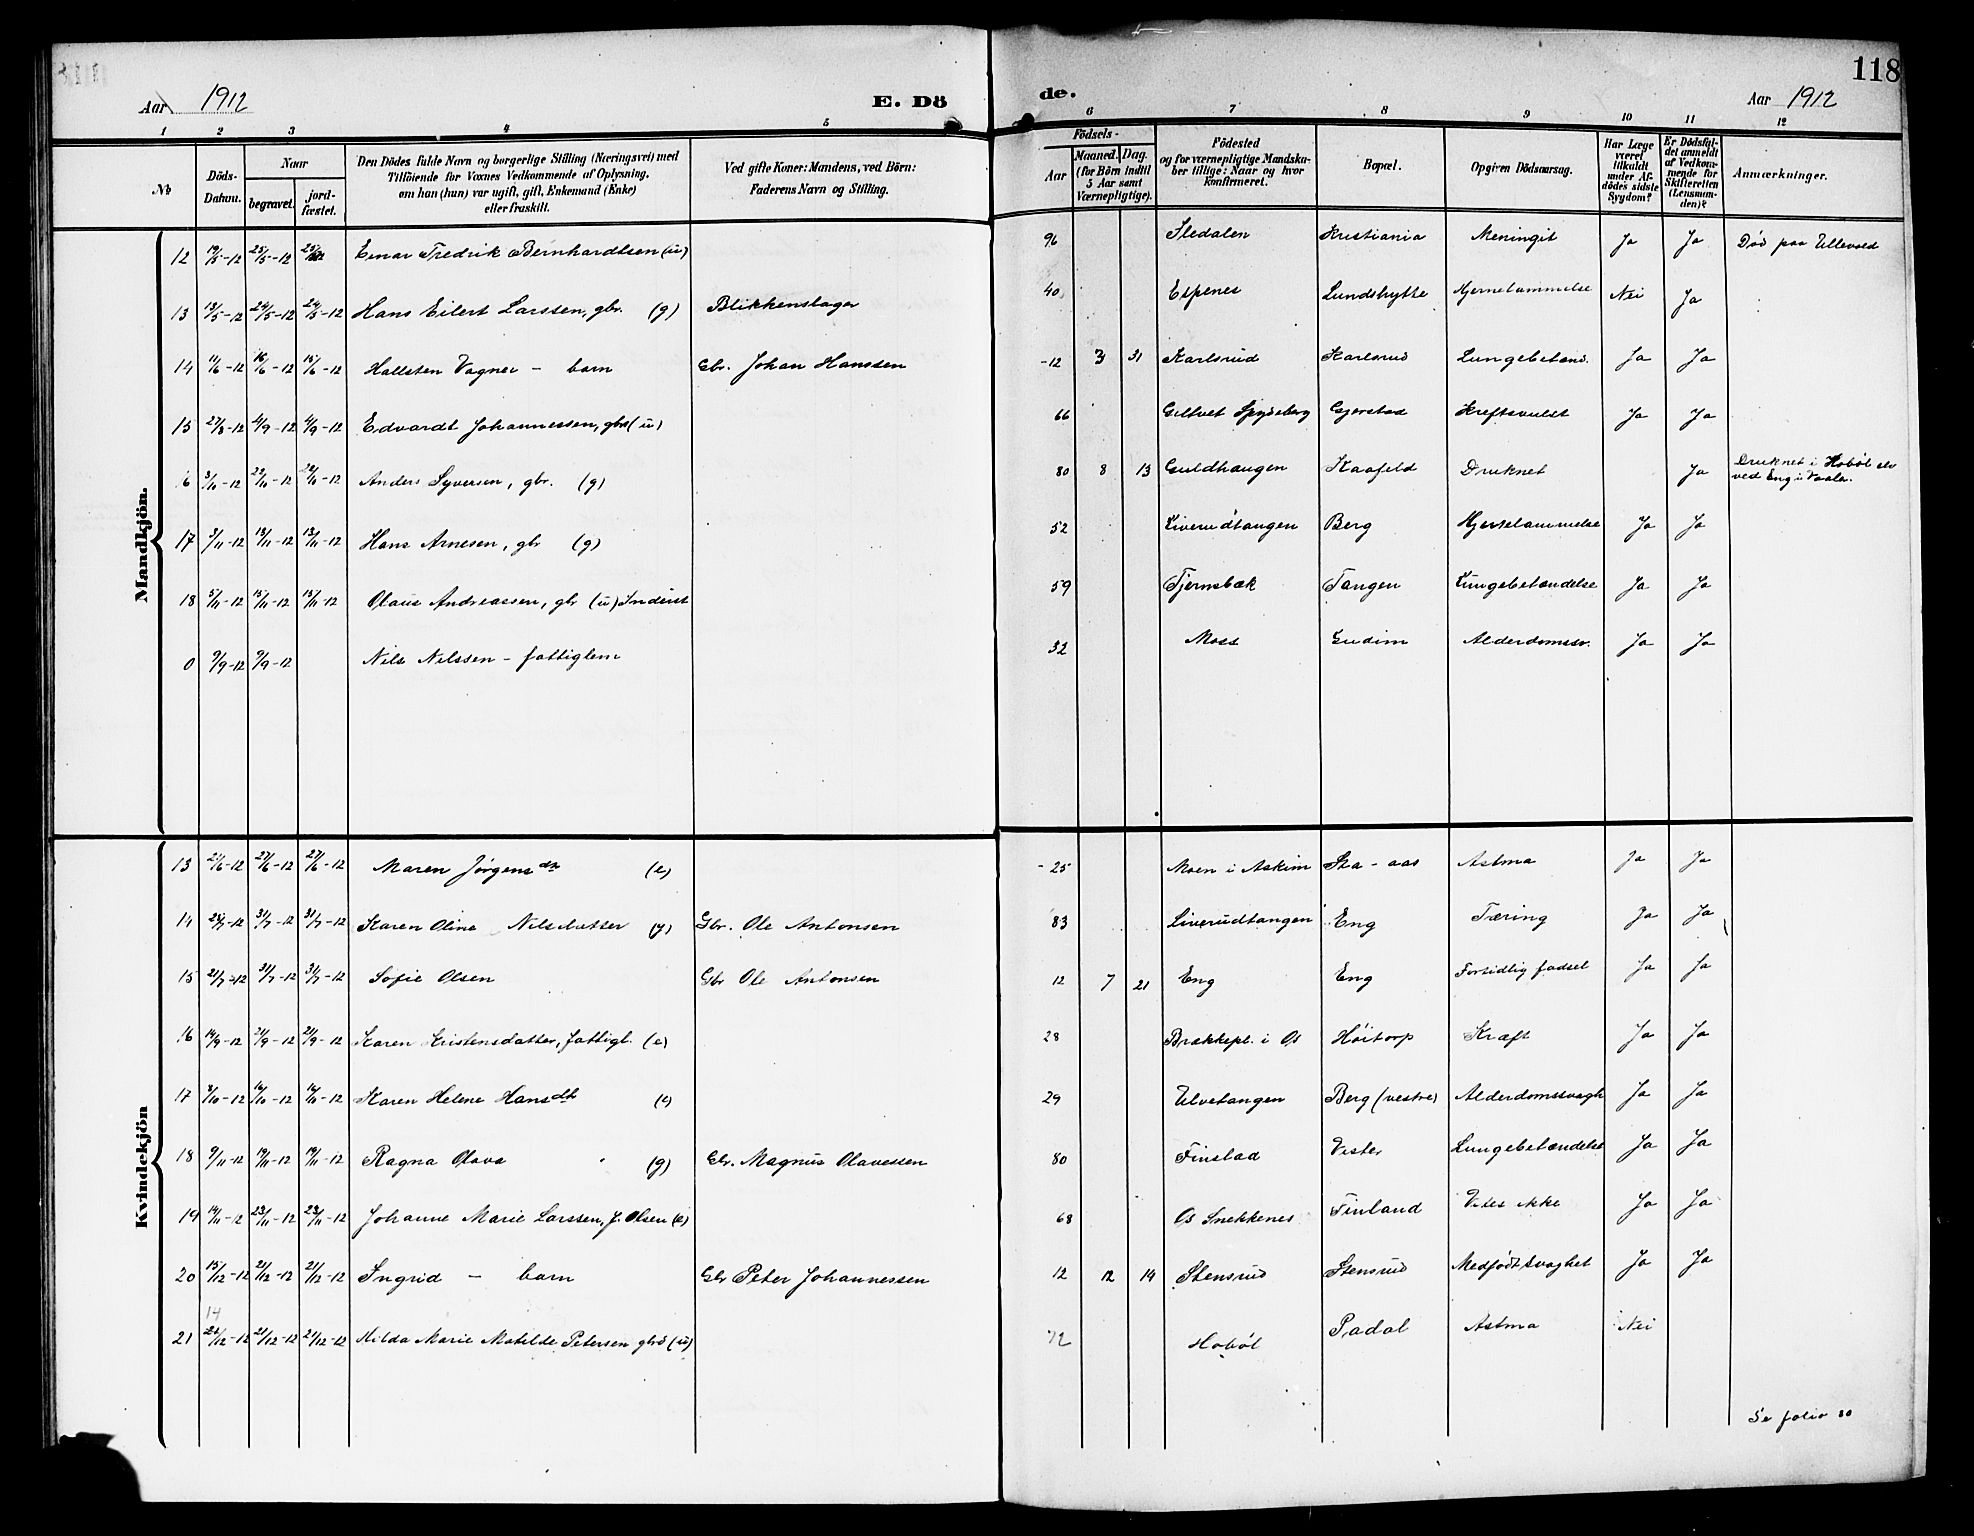 118
Aar 1912 E. Dö
de. Aar 1912
1 2 3 4 5
6 7 8 9 10 11 12
No
Döds-Datum.
Naar
begravet. jord-fæstet.
Den Dödes fulde Navn og borgerlige Stilling (Næringsvei) med
Tilföiende for Voxnes Vedkommende af Oplysning,
om han (hun) var ugift, gift, Enkemand (Enke)
eller fraskilt.
Ved gifte Koner: Mandens, ved Börn:
Faderens Navn og Stilling.
Födsels-
Aar Maaned. Dag.
(for Börn indtil
5 Aar samt
Værnepligtige).
Födested
og for værnepligtige Mandska-
ber tillige: Naar og hvor
konfirmeret.
Bopæl.
Opgiven Dödsaarsag.
Har Læge
været
tilkaldt
under Af-
dödes sidste
Sygdom?
Er Dödsfal-
det anmeldt
af Vedkom-
mende for
Skifteretten
(Lensman-
den)?
Anmærkninger.
Mandkjön.
12 19/5-12 25/5-12 25/5 Einar Fredrik Bernhardtsen (u) 96 Sledalen Kristiania Meningit Ja Ja Död paa Ullevold
13 13/5-12 24/5-12 24/5-12 Hans Eilert Larssen, gbr. (g) Blikkenslager 40 Espenes Lundshytte Hjernelammelse Nei Ja
14 11/6-12 16/6-12 15/6-12 Hallsten Vagner - barn Gbr. Johan Hanssen -12 3 31 Karlsrud Karlsrud Lungebetænd. Ja Ja
15 27/8-12 4/9-12 4/9-12 Edvardt Johannessen, gbr (u) 66 Geltvet Spydeberg Gjerstad Kreftsvulst Ja Ja
6 3/11-12 22/11-12 22/11-12 Anders Syversen, gbr. (g) 80 8 13 Guldhaugen Kaafeld Druknet Ja Druknet i Hobøl elv
ved Eng i Vaaler.
17 3/11-12 13/11-12 13/11-12 Hans Arnesen, gbr (g) 52 Liverudtangen Berg Hjertelammelse Ja Ja
18 5/11-12 15/11-12 15/11-12 Olaus Andreassen, gbr (u) Inderst 59 Tjernsbæk Tangen Lungebetændelse Ja Ja
0 9/9-12 9/9-12 Nils Nilssen - fattiglem 32 Moss Gudim Alderdomssv. Ja Ja
Kvindekjön
13 21/6-12 27/6-12 27/6-12 Maren Jørgensdtr (e) -25 Moen i Askim Sta-aas Astma Ja Ja
14 28/7-12 31/7-12 31/7-12 Karen Oline Nilsdatter (g) Gbr. Ole Antonsen 83 Liverudtangen Eng Tæring Ja Ja
15 21/7-12 31/7-12 31/7-12 Sofie Olsen Gbr Ole Antonsen 12 7 21 Eng Eng Fortidlig fødsel Ja Ja
16 14/9-12 21/9-12 21/9-12 Karen Kristensdatter, fattigl. (e) 28 Brækkepl. i Os Höitorp Kræft Ja Ja
17 8/10-12 16/10-12 16/10-12 Karen Helene Hansdt (e) 29 Ulvetangen Berg (vestre) Alderdomssvagh Ja Ja
18 9/11-12 19/11-12 19/11-12 Ragna Olava (g) Gbr. Magnus Olavessen 80 Finstad Vester Lungebetændelse Ja Ja
19 14/11-12 23/11-12 23/11-12 Johanne Marie Larssen, f. Olsen (e) 68 Os Snekkenes Finland Vites ikke Ja Ja
20 15/12-12 21/12-12 21/12-12 Ingrid - barn Gbr Peter Johannessen 12 12 14 Stensrud Stensrud Medfødt svaghet Ja Ja
14
21 21/12-12 21/12-12 21/12-12 Hilda Marie Matilde Petersen gbrd (u) 72 Hobøl Padal Astma Nei
Se folio 80